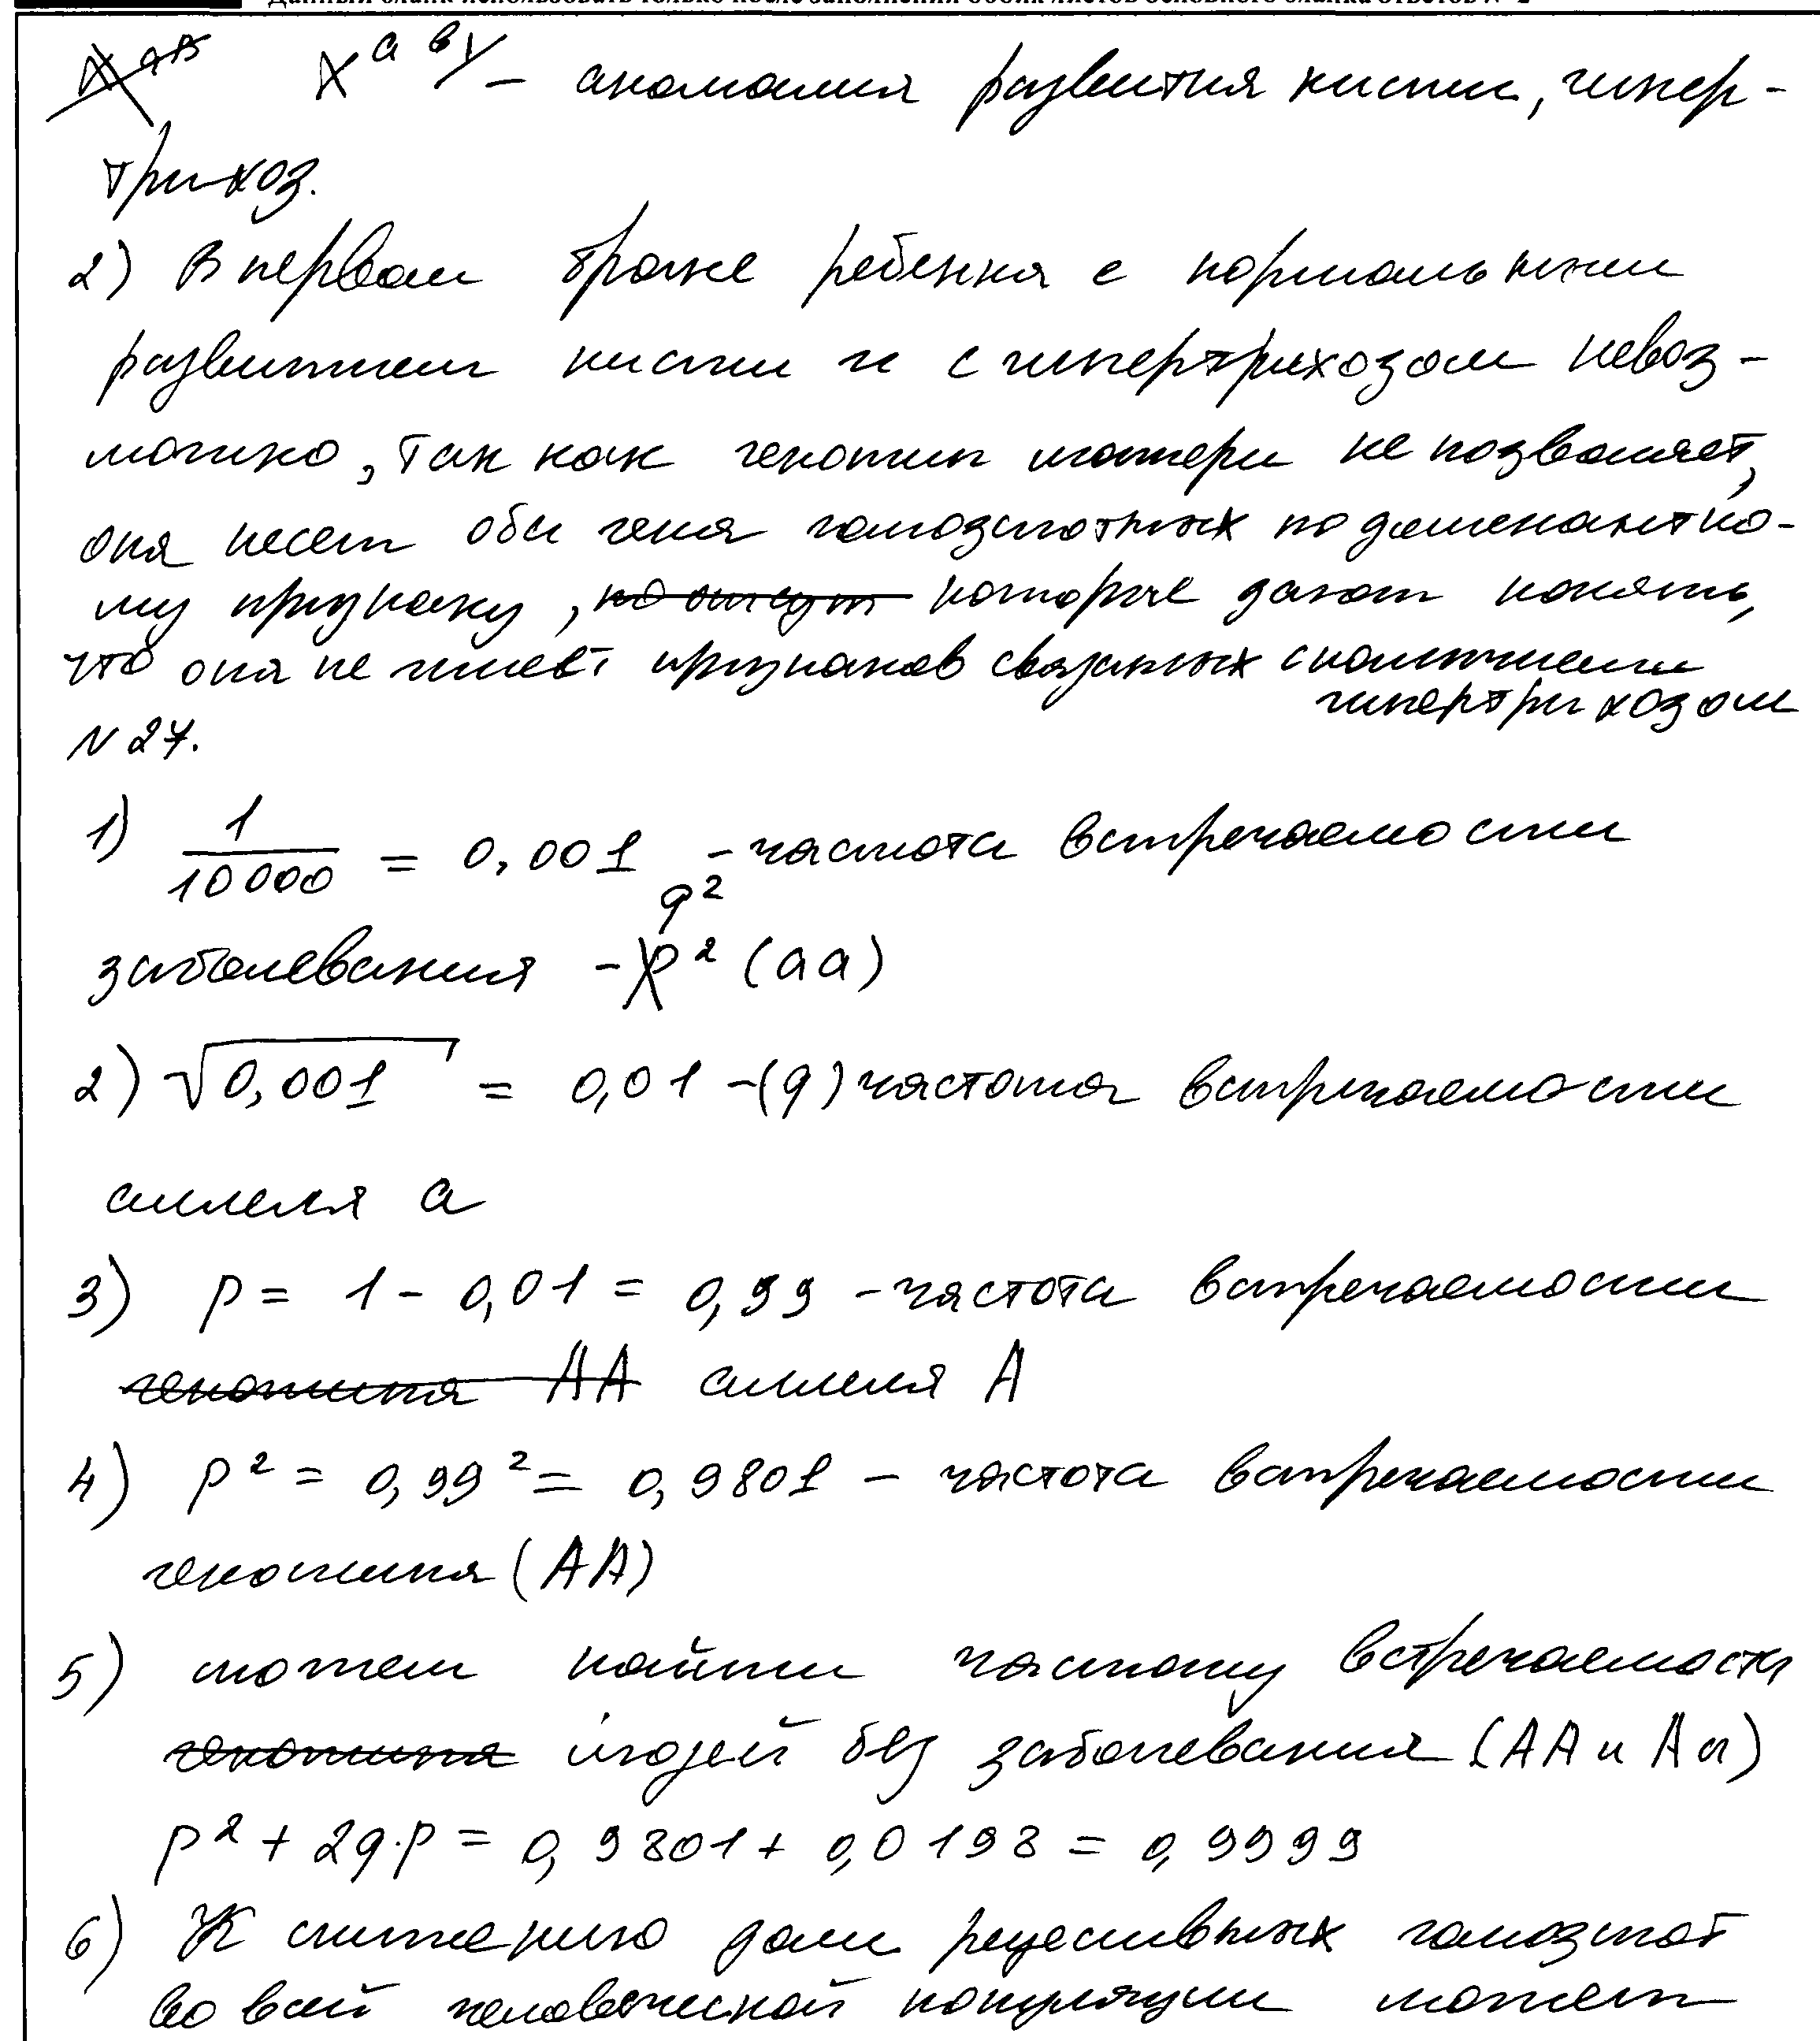 Данный бланк использовать только после заполнения обеих листов основного бланка ответов № 2
X^aB X^a в Y – аномалия развития кисти, гипер-
трихоз.
2) В первом браке ребенка с нормальным
развитием кисти и с гипертрихозом невоз-
можно, так как генотип матери не позволяет,
она несет оба гена гомозиготных по доменантно-
му признаку, которые дают понять,
что она не имеет признаков связанных с наличием
гипертрихозом
N 27.
1) 1/10000 = 0,001 – частота встречаемости
заболевания – q² p² (aa)
2) √0,001 = 0,01 – (q) частота встречаемости
аллеля a
3) p = 1 - 0,01 = 0,99 – частота встречаемости
генотипа AA аллеля A
4) p² = 0,99² = 0,9801 – частота встречаемости
генотипа (AA)
5) можем найти частоту встречаемости
генотипа людей без заболевания (AA и Aa)
p² + 2q·p = 0,9801 + 0,0198 = 0,9999
6) К снижению доли рецесивных гомозигот
во всей человеческой популяции может